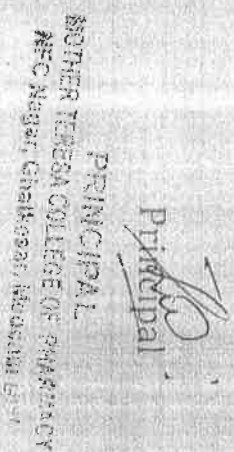 Principal
PRINCIPAL
MOTHER TERESA COLLEGE OF PHARMACY
NFC Nagar, Ghatkesar,